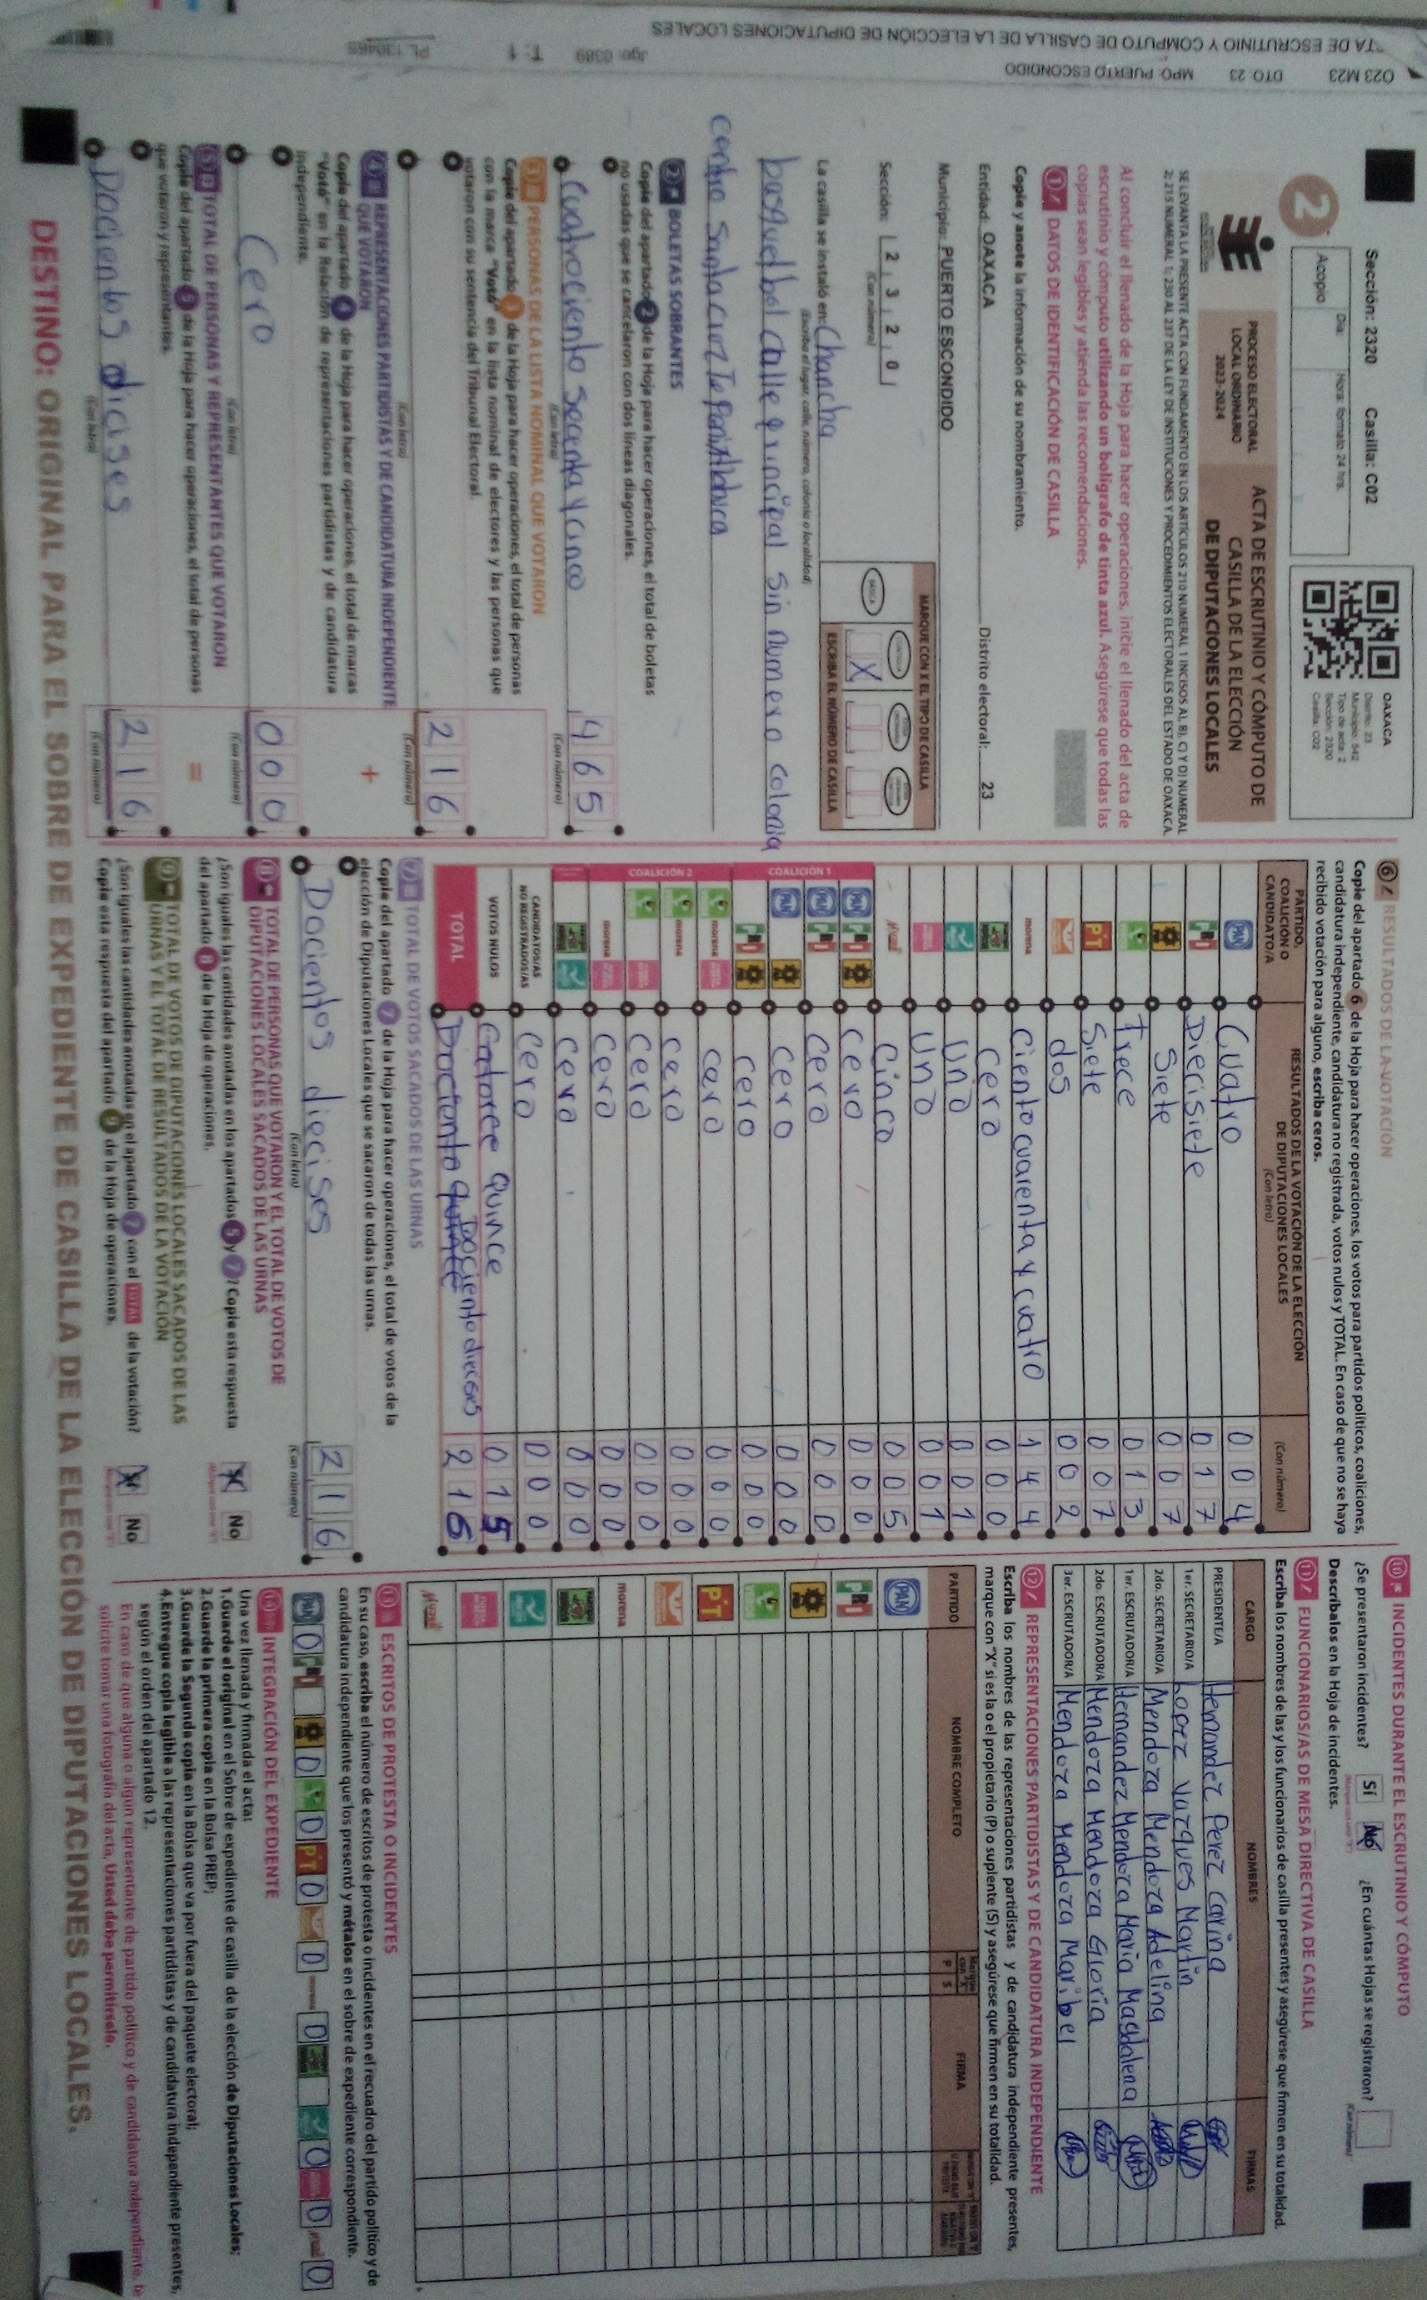 O23 M23 DTO: 23 MPO: PUERTO ESCONDIDO
TA DE ESCRUTINIO Y CÓMPUTO DE CASILLA DE LA ELECCIÓN DE DIPUTACIONES LOCALES
Jgo: 0389 T: 1 PL 130465
Sección: 2320 Casilla: C02
2
Acopio
Día
Hora: formato 24 hrs.
OAXACA
Distrito: 23
Municipio: 542
Tipo de acta: 2
Sección: 2320
Casilla: C02
PROCESO ELECTORAL
LOCAL ORDINARIO
2023-2024
ACTA DE ESCRUTINIO Y CÓMPUTO DE
CASILLA DE LA ELECCIÓN
DE DIPUTACIONES LOCALES
SE LEVANTA LA PRESENTE ACTA CON FUNDAMENTO EN LOS ARTÍCULOS 210 NUMERAL 1 INCISOS A), B), C) Y D) NUMERAL
2; 215 NUMERAL 1; 230 AL 237 DE LA LEY DE INSTITUCIONES Y PROCEDIMIENTOS ELECTORALES DEL ESTADO DE OAXACA.
Al concluir el llenado de la Hoja para hacer operaciones, inicie el llenado del acta de
escrutinio y cómputo utilizando un bolígrafo de tinta azul. Asegúrese que todas las
copias sean legibles y atienda las recomendaciones.
1 DATOS DE IDENTIFICACIÓN DE CASILLA
Copie y anote la información de su nombramiento.
Entidad: OAXACA Distrito electoral: 23
Municipio: PUERTO ESCONDIDO
Sección: 2 3 2 0
(Con número)
MARQUE CON X EL TIPO DE CASILLA
BÁSICA
X
ESCRIBA EL NÚMERO DE CASILLA
La casilla se instaló en: Chancha
(Escriba el lugar, calle, número, colonia o localidad)
basquetbol calle principal sin numero colonia
centro santa cruz
2 BOLETAS SOBRANTES
Copie del apartado 2 de la Hoja para hacer operaciones, el total de boletas
no usadas que se cancelaron con dos líneas diagonales.
Cuatrociento secenta y cinco 465
(Con letra) (Con número)
3 PERSONAS DE LA LISTA NOMINAL QUE VOTARON
Copie del apartado 3 de la Hoja para hacer operaciones, el total de personas
con la marca "Votó" en la lista nominal de electores y las personas que
votaron con su sentencia del Tribunal Electoral.
216
(Con letra) (Con número)
4 REPRESENTACIONES PARTIDISTAS Y DE CANDIDATURA INDEPENDIENTE
QUE VOTARON
Copie del apartado 4 de la Hoja para hacer operaciones, el total de marcas
"Votó" en la Relación de representaciones partidistas y de candidatura
independiente.
+
Cero 000
(Con letra) (Con número)
5 TOTAL DE PERSONAS Y REPRESENTANTES QUE VOTARON
Copie del apartado 5 de la Hoja para hacer operaciones, el total de personas
que votaron y representantes.
=
Docientos dicises 216
(Con letra) (Con número)
6 RESULTADOS DE LA VOTACIÓN
Copie del apartado 6 de la Hoja para hacer operaciones, los votos para partidos políticos, coaliciones,
candidatura independiente, candidatura no registrada, votos nulos y TOTAL. En caso de que no se haya
recibido votación para alguno, escriba ceros.
PARTIDO, COALICIÓN O CANDIDATO/A
RESULTADOS DE LA VOTACIÓN DE LA ELECCIÓN DE DIPUTACIONES LOCALES
(Con letra) (Con número)
PAN Cuatro 004
PRI Diecisiete 017
Siete 007
Trece 013
PT Siete 007
dos 002
morena Ciento cuarenta y cuatro 144
Cero 000
Uno 001
Uno 001
Cinco 005
COALICIÓN 1
PAN PRI cero 000
PAN PRI cero 000
PAN cero 000
PRI cero 000
COALICIÓN 2
morena cero 000
morena cero 000
cero 000
morena cero 000
cero 000
CANDIDATOS/AS NO REGISTRADOS/AS cero 000
VOTOS NULOS Catorce Quince 015
TOTAL Dociento quince Dociento diecises 216
7 TOTAL DE VOTOS SACADOS DE LAS URNAS
Copie del apartado 7 de la Hoja para hacer operaciones, el total de votos de la
elección de Diputaciones Locales que se sacaron de todas las urnas.
Docientos diecises 216
(Con letra) (Con número)
8 TOTAL DE PERSONAS QUE VOTARON Y EL TOTAL DE VOTOS DE
DIPUTACIONES LOCALES SACADOS DE LAS URNAS
¿Son iguales las cantidades anotadas en los apartados 5 y 7? Copie esta respuesta
del apartado 8 de la Hoja de operaciones.
X No
9 TOTAL DE VOTOS DE DIPUTACIONES LOCALES SACADOS DE LAS
URNAS Y EL TOTAL DE RESULTADOS DE LA VOTACIÓN
¿Son iguales las cantidades anotadas en el apartado 7 con el TOTAL de la votación?
Copie esta respuesta del apartado 9 de la Hoja de operaciones.
X No
10 INCIDENTES DURANTE EL ESCRUTINIO Y CÓMPUTO
¿Se presentaron incidentes? Sí No ¿En cuántas Hojas se registraron?
(Con número)
Descríbalos en la Hoja de incidentes.
11 FUNCIONARIOS/AS DE MESA DIRECTIVA DE CASILLA
Escriba los nombres de las y los funcionarios de casilla presentes y asegúrese que firmen en su totalidad.
CARGO NOMBRES FIRMAS
PRESIDENTE/A Hernandez Perez Carina
1er. SECRETARIO/A Lopez Vazques Martin
2do. SECRETARIO/A Mendoza Mendoza Adelina
1er. ESCRUTADOR/A Hernandez Mendoza Maria Magdalena
2do. ESCRUTADOR/A Mendoza Mendoza Gloria
3er. ESCRUTADOR/A Mendoza Mendoza Maribel
12 REPRESENTACIONES PARTIDISTAS Y DE CANDIDATURA INDEPENDIENTE
Escriba los nombres de las representaciones partidistas y de candidatura independiente presentes,
marque con "X" si es la o el propietario (P) o suplente (S) y asegúrese que firmen en su totalidad.
PARTIDO NOMBRE COMPLETO Marque con "X" P S FIRMA
PAN
PRI
PT
morena
13 ESCRITOS DE PROTESTA O INCIDENTES
En su caso, escriba el número de escritos de protesta o incidentes en el recuadro del partido político y de
candidatura independiente que los presentó y métalos en el sobre de expediente correspondiente.
PAN 0 PRI 0 0 PT 0 0 morena 0 0 0 0
14 INTEGRACIÓN DEL EXPEDIENTE
Una vez llenada y firmada el acta:
1.Guarde el original en el Sobre de expediente de casilla de la elección de Diputaciones Locales;
2.Guarde la primera copia en la Bolsa PREP;
3.Guarde la Segunda copia en la Bolsa que va por fuera del paquete electoral;
4.Entregue copia legible a las representaciones partidistas y de candidatura independiente presentes,
según el orden del apartado 12.
En caso de que alguna o algún representante de partido político y de candidatura independiente, le
solicite tomar una fotografía del acta, Usted debe permitírselo.
DESTINO: ORIGINAL PARA EL SOBRE DE EXPEDIENTE DE CASILLA DE LA ELECCIÓN DE DIPUTACIONES LOCALES.